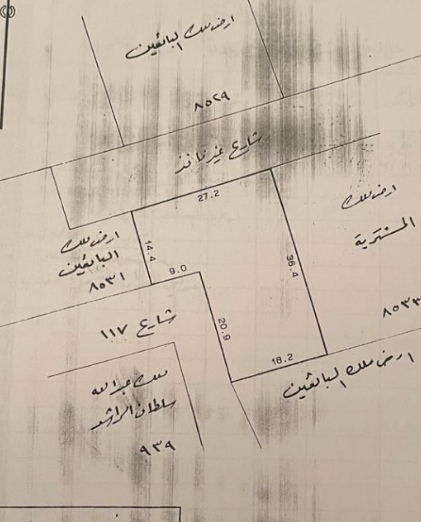 ارض ملك البائعين
٨٥٢٩
شارع غير نافذ
27.2
ارض ملك
المشترية
٨٥٣٣
ارض ملك
البائعين
٨٥٣١
14.4
9.0
36.4
شارع ١١٧
20.9
18.2
ارض ملك البائعين
ملك عبدالله
سلطان الراشد
٩٣٩